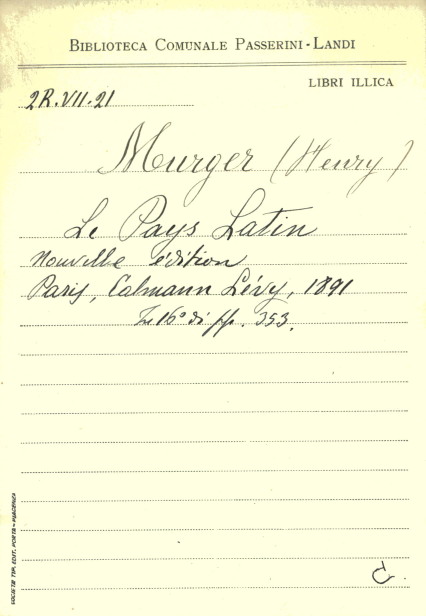 BIBLIOTECA COMUNALE PASSERINI-LANDI
LIBRI ILLICA
2R.VII.21
Murger (Henry)
Le Pays Latin
Nouvelle édition
Paris, Calmann Lévy, 1891
In 16° di pp. 353.
C
SOCIETÀ TIP. EDIT. PORTA - PIACENZA